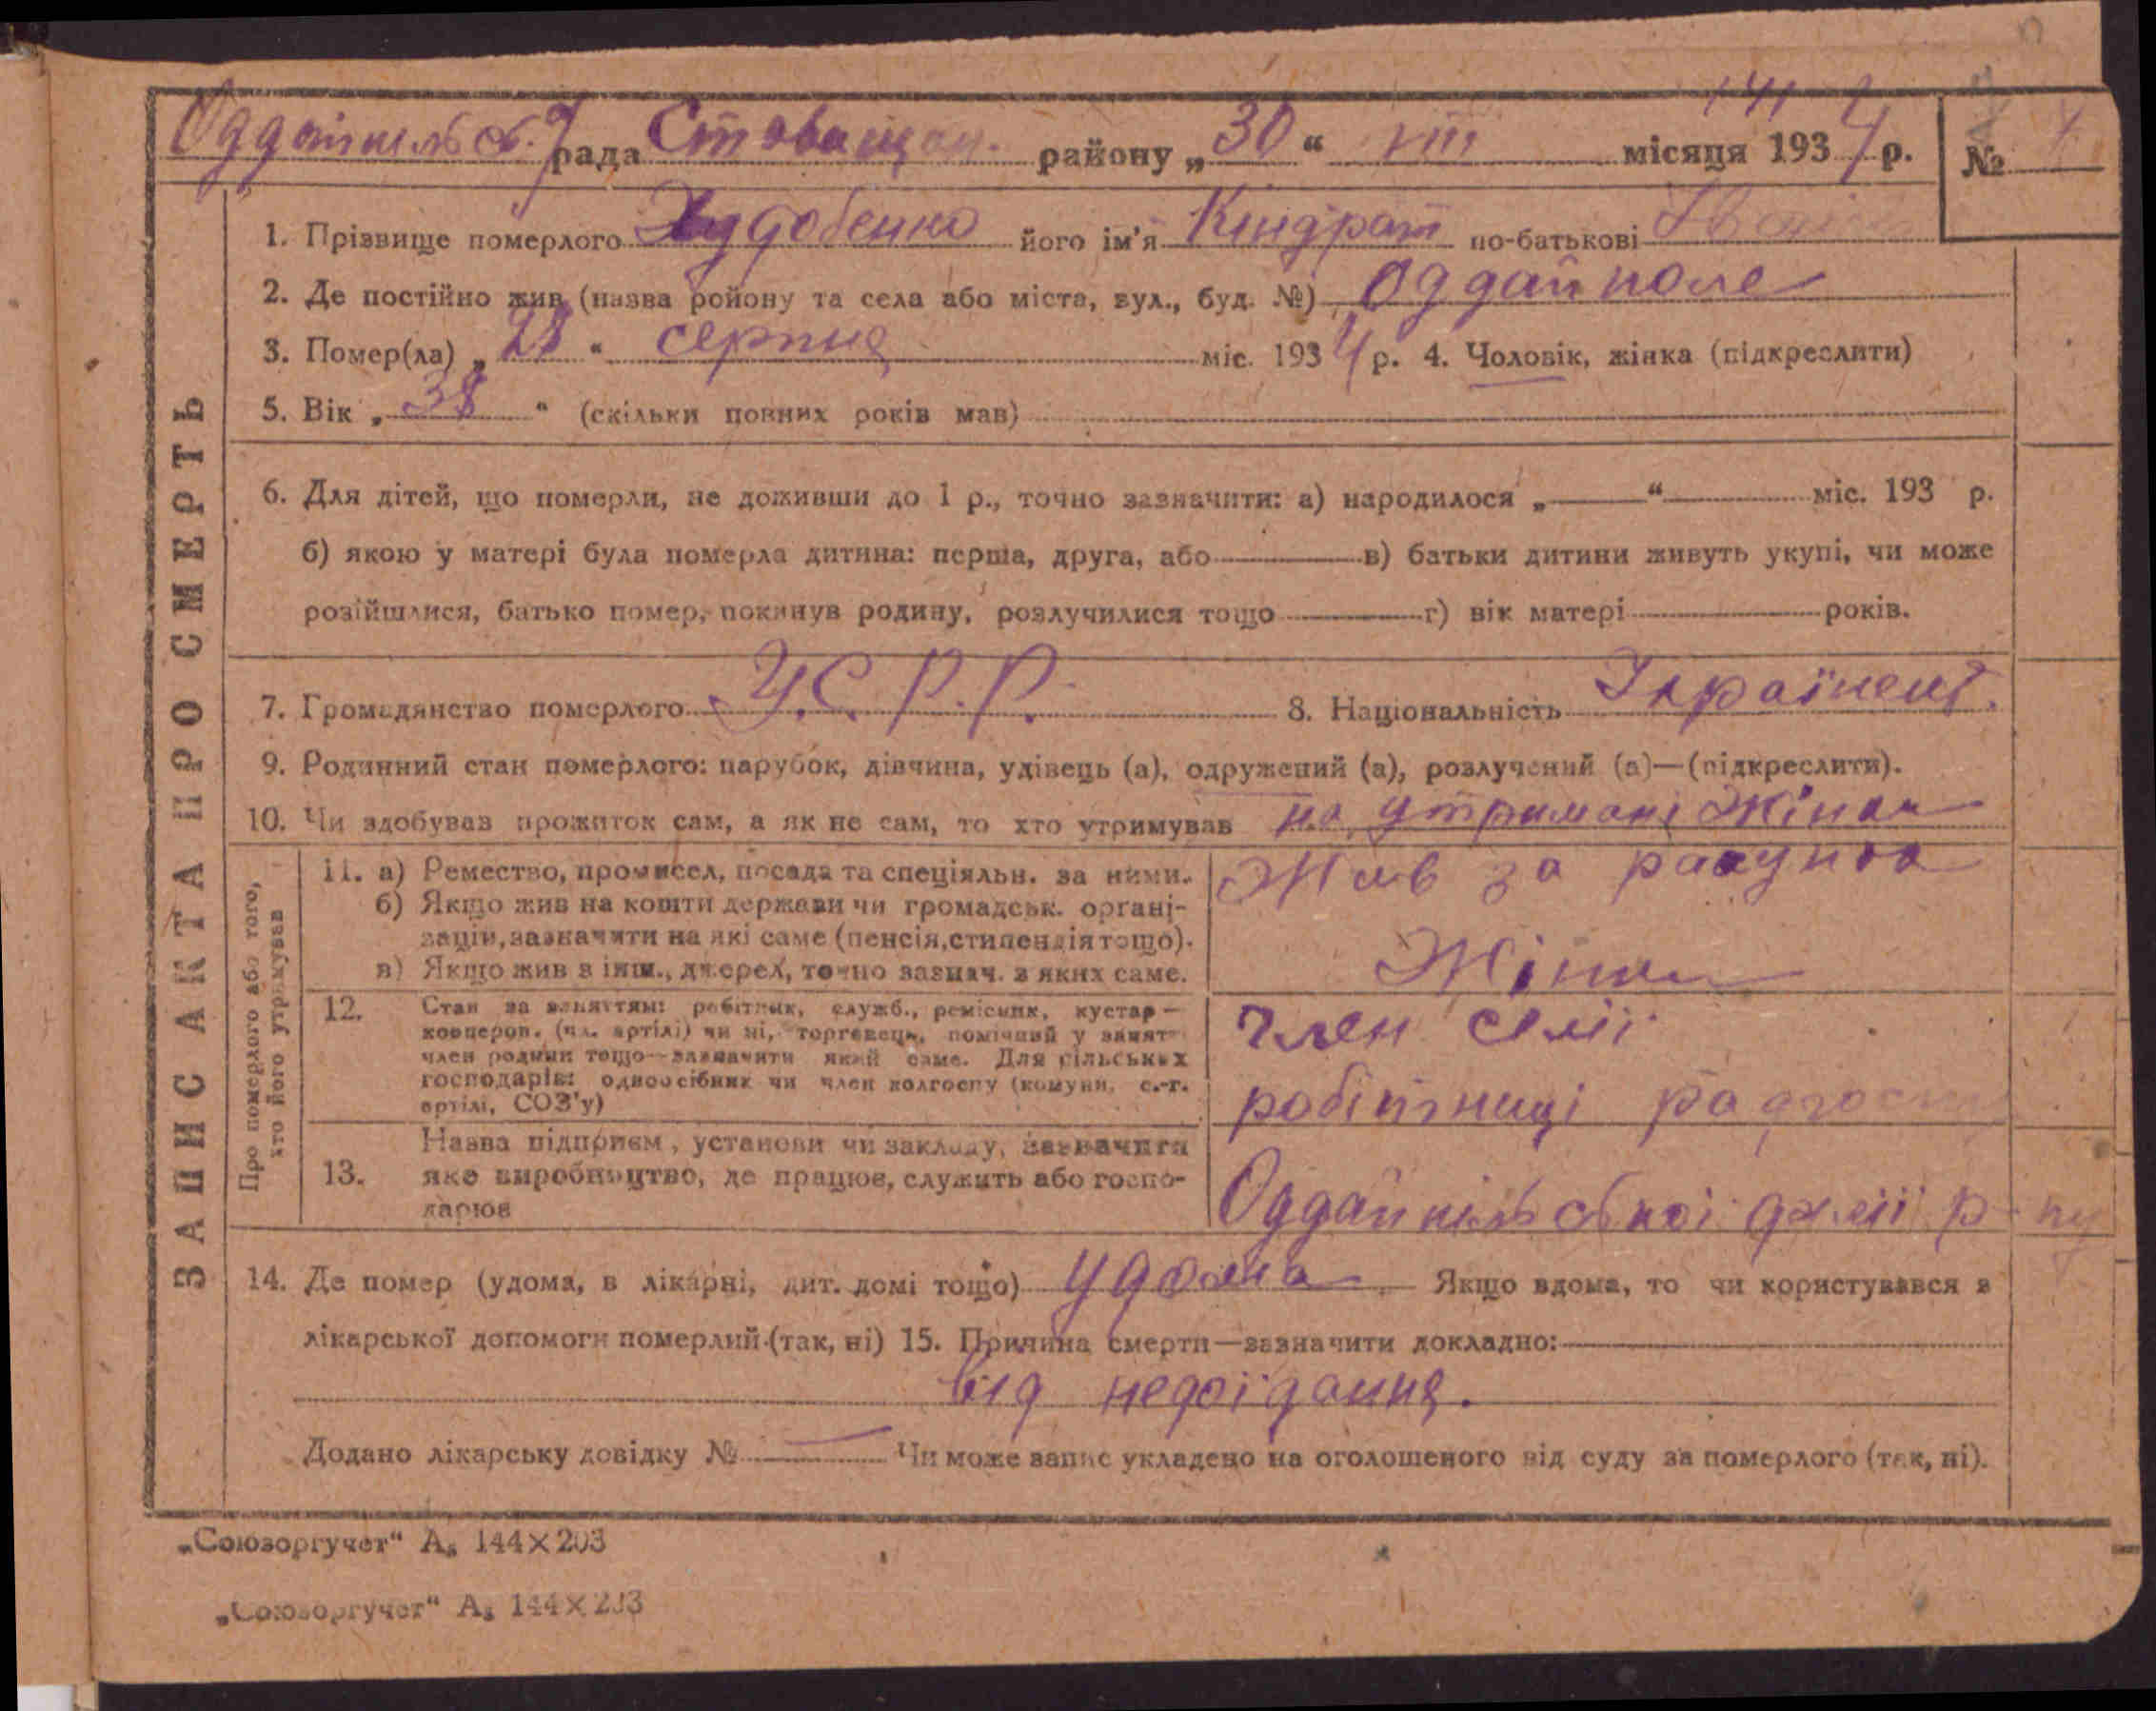 рада района „30“ VIII місяця 1934 р. №
1. Прізвище померлого Худобенко його ім'я Кіндрат по-батькові
2. Де постійно жив (назва ройону та села або міста, вул., буд. №) Оддайполе
3. Помер(ла) „28“ серпня міс. 1934 р. 4. Чоловік, жінка (підкреслити)
5. Вік „38“ (скільки повних років мав)
6. Для дітей, що померли, не доживши до 1 р., точно зазначити: а) народилося „ “ міс. 193 р.
б) якою у матері була померла дитина: перша, друга, або в) батьки дитини живуть укупі, чи може
розійшлися, батько помер, покинув родину, розлучилися тощо г) вік матері років.
7. Громадянство померлого У.С.Р.Р. 8. Національність Українець.
9. Родинний стан померлого: парубок, дівчина, удівець (а), одружений (а), розлучений (а)—(підкреслити).
10. Чи здобував прожиток сам, а як не сам, то хто утримував на утримані Жінки
ЗАПИС АКТА ПРО СМЕРТЬ
Про померлого або того,
хто його утримував
11. а) Ремество, промисел, посада та спеціяльн. за ними.
б) Якщо жив на кошти держави чи громадськ. органі-
зацій, зазначити на які саме (пенсія, стипендія тощо).
в) Якщо жив з інш., джерел, точно зазнач. з яких саме.
Жив за рахунок
Жінки
12. Стан за заняттям: робітник, служб., ремісник, кустар—
кооперов. (чл. артілі) чи ні, торговець, помічний у занят
член родини тощо—зазначити який саме. Для сільських
господарів: одноосібник чи член колгоспу (комуни, с.-г.
артілі, СОЗ'у)
член семії
робітниці
13. Назва підприєм, установи чи закладу, зазначити
яке виробництво, де працює, служить або госпо-
дарює
Оддайпільської
14. Де помер (удома, в лікарні, дит. домі тощо) удома Якщо вдома, то чи користувався з
лікарської допомоги померлий (так, ні) 15. Причина смерти—зазначити докладно:
від недоїдання.
Додано лікарську довідку № Чи може запис укладено на оголошеного від суду за померлого (так, ні).
„Союзоргучет“ А₅ 144×203
„Союзоргучет“ А₅ 144×203